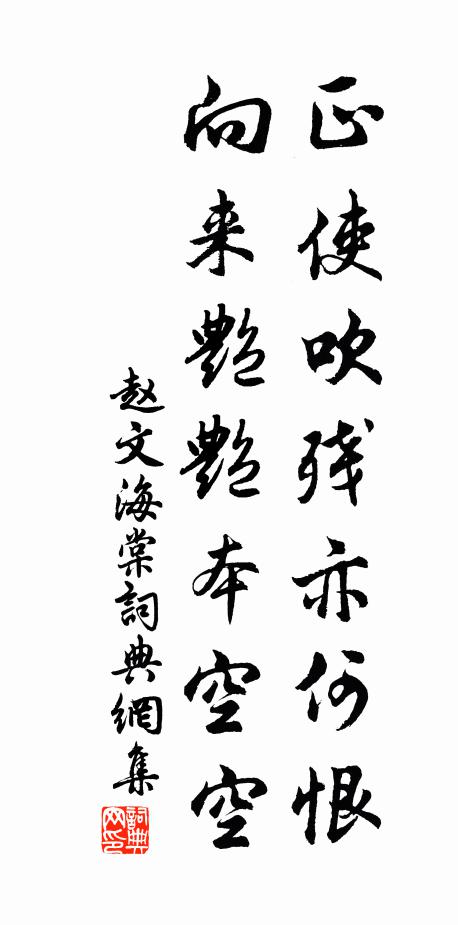 正使吹残亦何恨
向来艷艷本空空
赵文海棠詞典網集
詞典網印